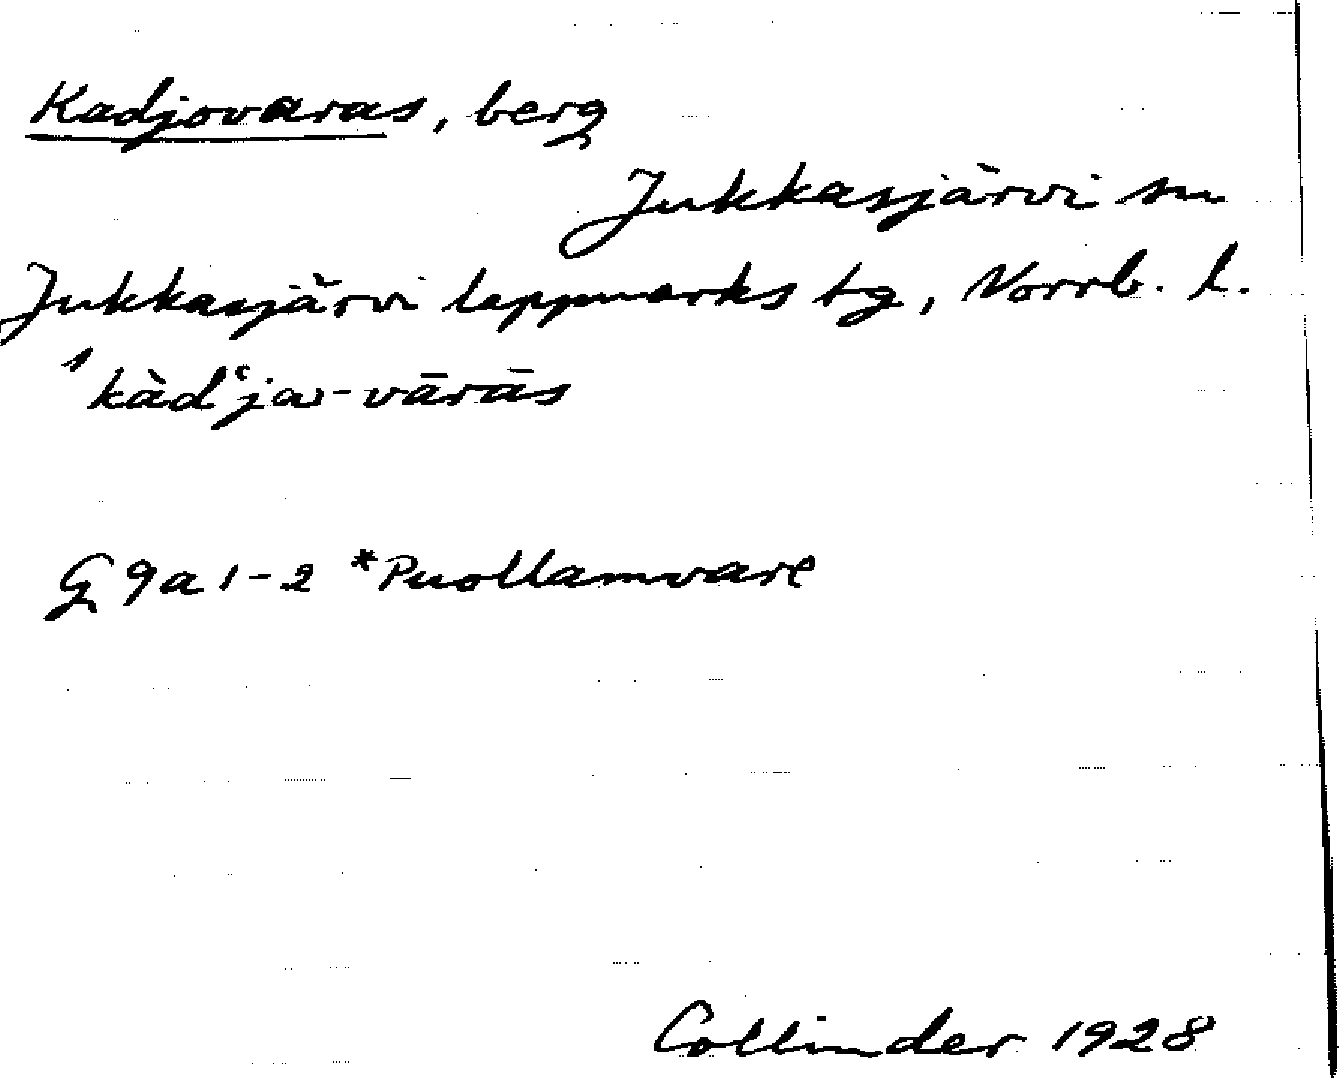 Kadjovaras, berg
Jukkasjärvi sn
Jukkasjärvi lappmarks tg, Norrb. l.
ˈkàdʿjaυ-vārās
G 9a 1-2 *Puollamvare
Collinder 1928